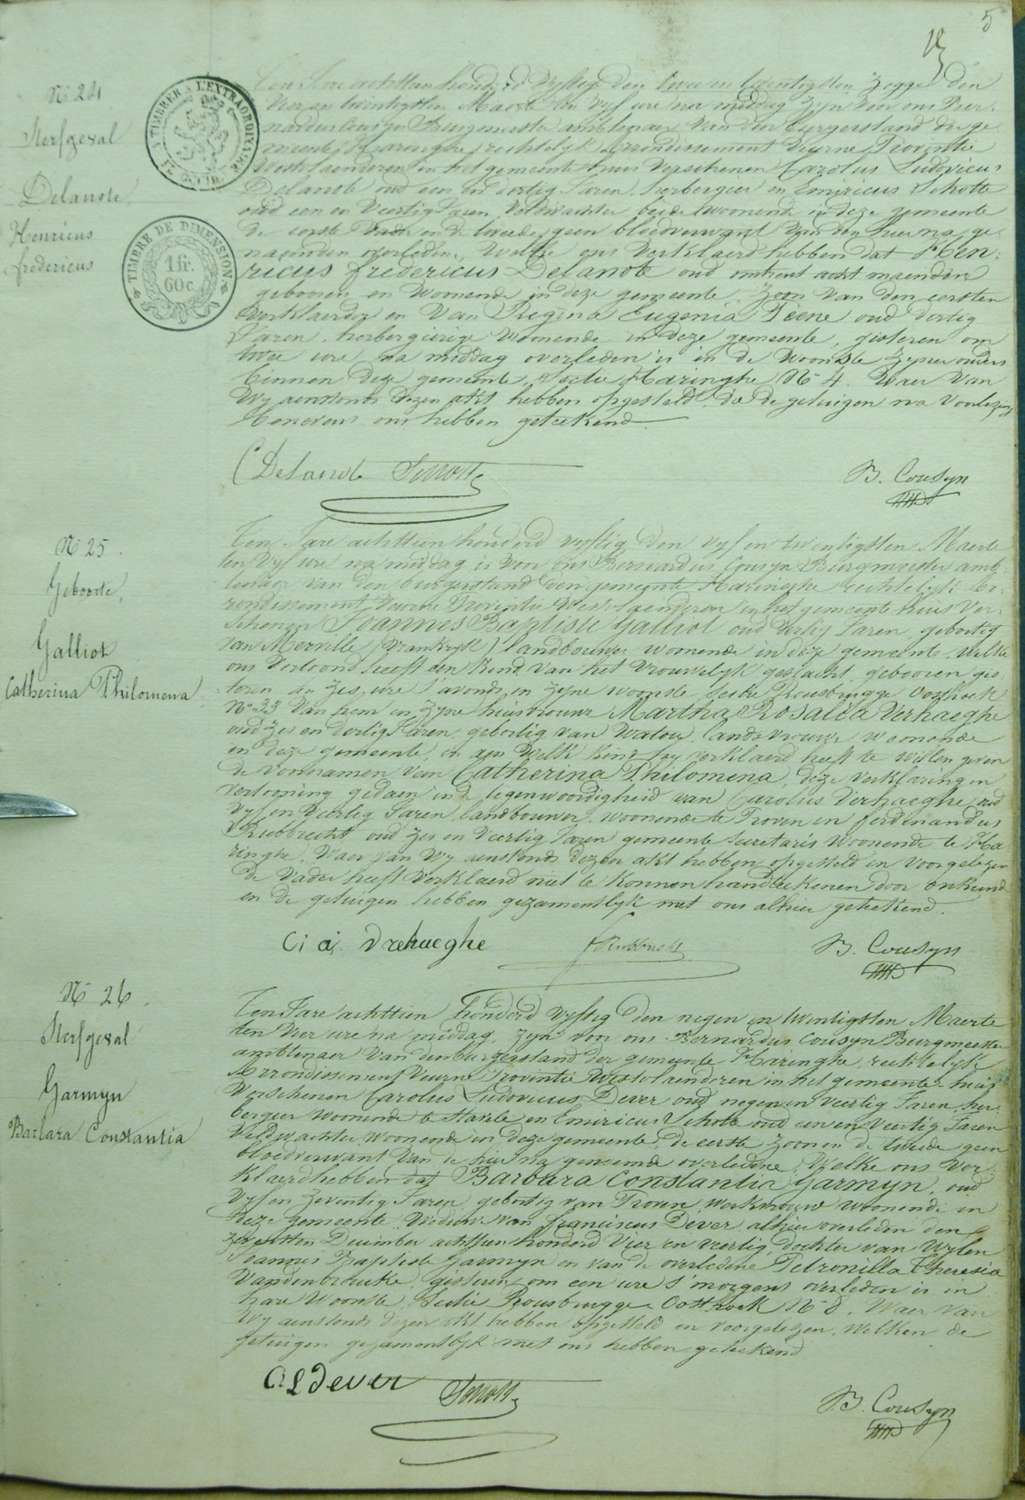 5
N° 24
Sterfgeval
Delanote
Henricus
fredericus
A TIMBRER A L'EXTRAORDINAIRE
TIMBRE DE DIMENSION
1 fr.
60 c.
Ten Jare achttien honderd vyftig den twee en twintigsten zegge den
vier en twintigsten Maerte ten vyf ure na middag zyn voor ons Ber-
nardus Cousyn Burgemeester ambtenaer van den burgerstand der ge-
meente Haringhe rechtelyk arrondissement Veurne Provintie
Westvlaenderen in het gemeente huis verschenen Carolus Ludovicus
Delanote oud een en dertig Jaren herbergier en Emiricus Schotte
oud een en veertig Jaren veldwachter beide woonende in deze gemeente
de eerste vader en de tweede geen bloedverwant van den hier na ge-
naemden overleden, welke ons verklaerd hebben dat Hen-
ricus fredericus Delanote oud omtrent acht maenden
gebooren en woonende in deze gemeente, Zoon van den eersten
verklaerder en van Regina Eugenia Feene oud dertig
Jaren herbergierige woonende in deze gemeente, gisteren om
twee ure na middag overleden is in de woonste zyner ouders
binnen deze gemeente Sectie Haringhe N° 4. Waer van
wy aenstonds dezen akt hebben opgesteld die de getuigen na voorlezing
Henevens ons hebben geteekend
C Delanote Schotte B. Cousyn
N° 25.
Geboorte.
Galliot
Catherina Philomena
Ten Jare achttien honderd vyftig den vyf en twintigsten Maerte
ten vyf ure na middag is voor ons Bernardus Cousyn Burgmeester amb-
tenaer van den burgerstand der gemeente Haringhe rechtelyk ar-
rondissement Veurne Provintie Westvlaenderen in het gemeente huis ver-
schenen Joannes Baptiste Galliot oud dertig Jaren, gebortig
van Merville (Vrankryk) Landbouwer woonende in deze gemeente, welke
ons vertoond heeft een kind van het vrouwelyk geslacht, gebooren gis-
teren ten zes ure s'avonds in zyne woonste Sectie Rousbrugge Oosthoek
N° 25 van hem en zyne huisvrouw Martha Rosalia Verhaeghe
oud zes en dertig Jaren gebortig van Watou landsvrouwe woonende
in deze gemeente, en aen welk kind hy verklaerd heeft te willen geven
de voornamen van Catherina Philomena, deze verklaring en
vertooning gedaen in de tegenwoordigheid van Carolus Verhaeghe oud
vyf en veertig Jaren landbouwer woonende te Proven en ferdinandus
Rubbrecht oud zes en veertig Jaren gemeente Secretaris woonende te Ha-
ringhe. Waer van wy aenstonds dezen akt hebben opgesteld en voorgelezen
de vader heeft verklaerd niet te konnen handteekenen door onkunde
en de getuigen hebben gezamentlyk met ons alhier geteekend.
B. Cousyn
N° 26.
Sterfgeval
Garmyn
Barbara Constantia
Ten Jare achttien honderd vyftig den negen en twintigsten Maerte
ten vier ure na middag, zyn voor ons Bernardus Cousyn Burgmeester
ambtenaer van den burgerstand der gemeente Haringhe, rechtelyk
Arrondissement Veurne Provintie Westvlaenderen in het gemeente huis
Verschenen Carolus Ludovicus Dever oud negen en veertig Jaren her-
bergier woonende te Stavele en Emiricus Schotte oud een en veertig Jaren
veldwachter woonende in deze gemeente, de eerste zoon en de tweede geen
bloedverwant van de hier na genaemde overledene, Welke ons ver-
klaerd hebben dat Barbara Constantia Garmyn, oud
vyf en zeventig Jaren gebortig van Proven werkvrouw woonende in
deze gemeente Weduwe van Franciscus Dever alhier overleden den
December achttien honderd vier en veertig, dochter van wylen
Joannes Baptiste Garmyn en van de overledene Petronilla Theresia
Vandenbroucke, gisteren om een ure s'morgens overleden is in
hare woonste, Sectie Rousbrugge Oosthoek N° 8. Waer van
wy aenstonds dezen akt hebben opgesteld en voorgelezen, Welken de
getuigen gezamentlyk met ons hebben geteekend
C L Dever Schotte B. Cousyn